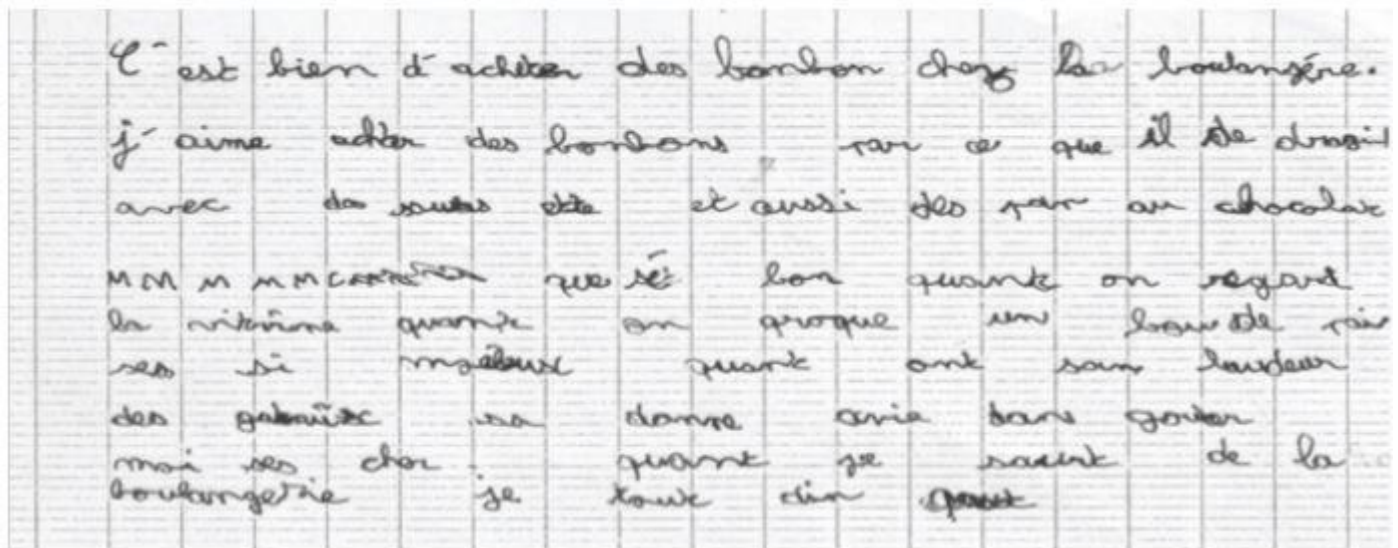 C'est bien d'acheter des bonbon chez la boulangére.
j'aime achter des bonbons par ce que il de
avec des et aussi des pan au chocolat
M M M M M que sé bon quant on regart
la vitrine quant on qroque un bou de
ses si quant ont san loudeur
des sa donne anvie dan gouter
moi ses cher. quant je saurt de la
boulangerie je tout din